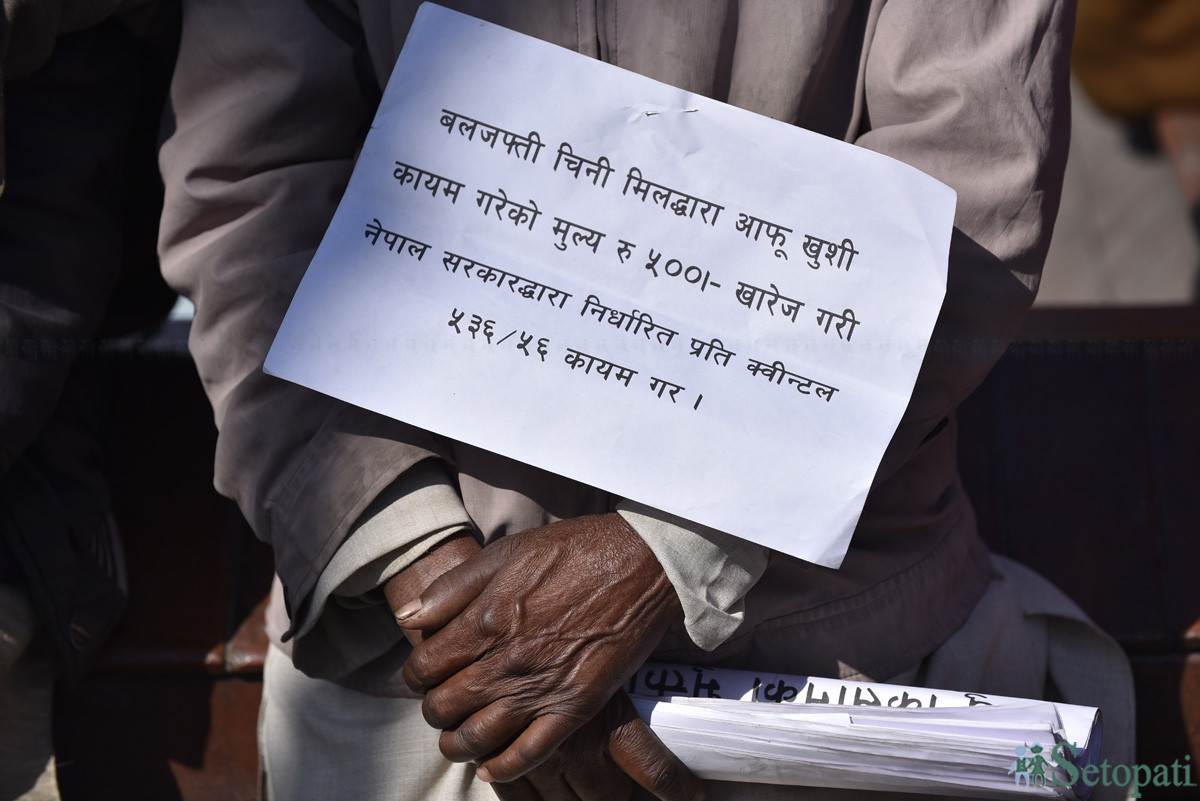 बलजफ्ती चिनी मिलद्धारा आफू खुशी
कायम गरेको मुल्य रु ५००।- खारेज गरी
नेपाल सरकारद्धारा निर्धारित प्रति क्वीन्टल
५३६/५६ कायम गर ।
Setopati